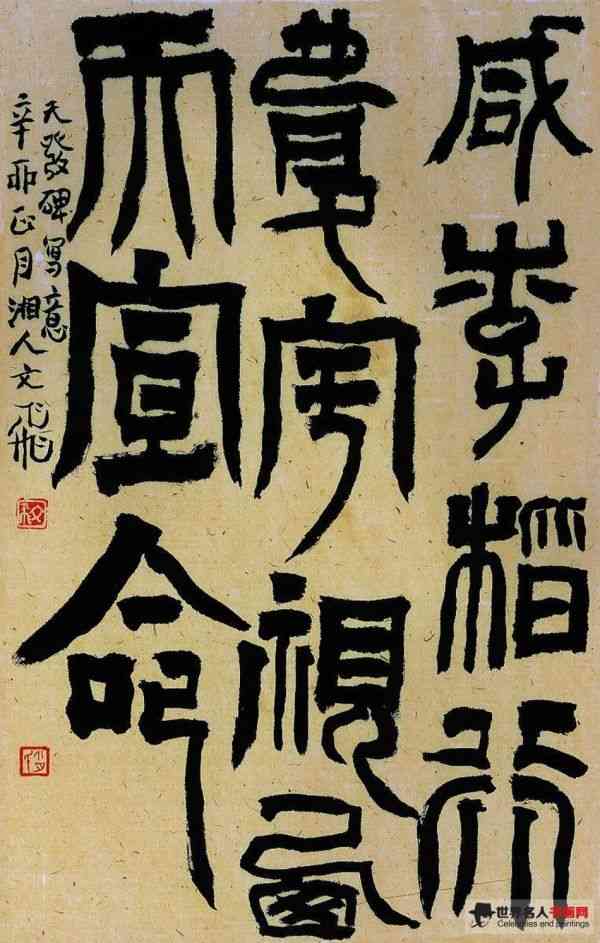 咸李楷行
宇視
而宣命
天發碑寫意
辛卯正月湘人文
世界名人书画网
Celebrities and paintings